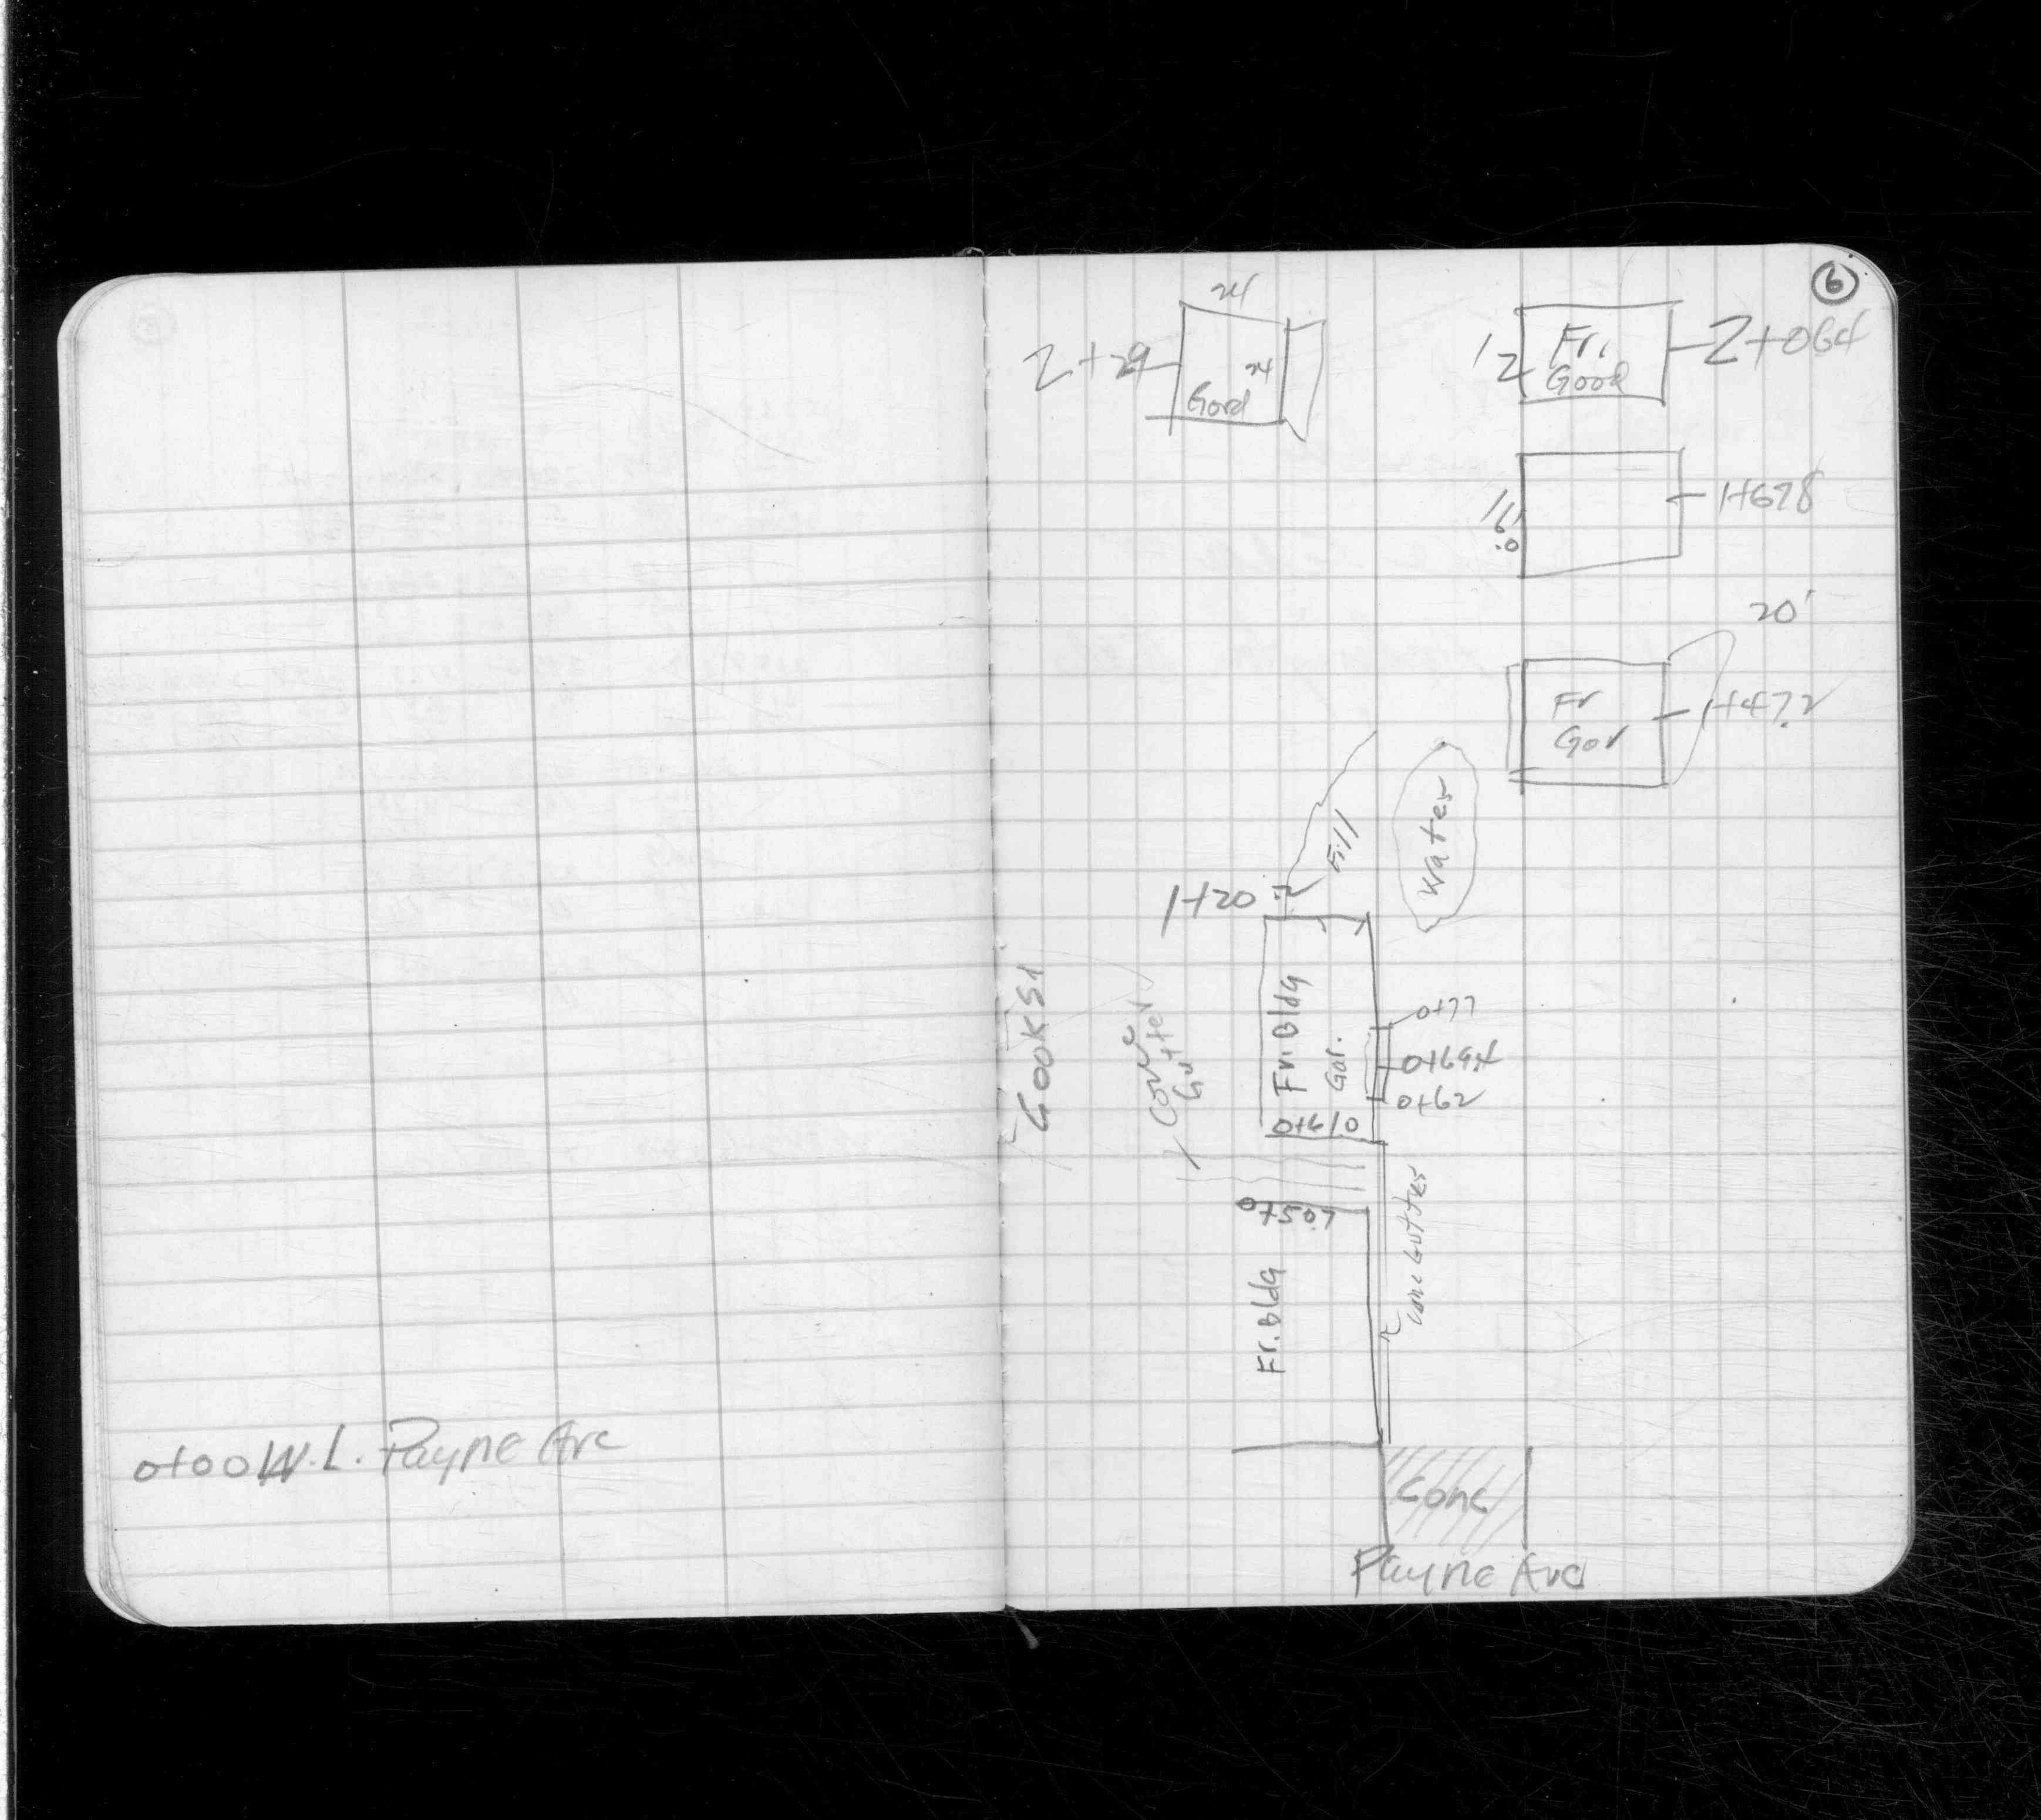 6
24
2+29
24
Gard
12
Fr.
Good
2+064
1+678
16.0
20'
Fr
Gar
1+47.2
Fill
Water
1+20.2
Cook St
Conc
Gutter
Fr. Bldg
Gar.
0+77
0+69.4
0+62
0+61.0
0+50.7
Conc Gutter
Fr. Bldg
0+00 W.L. Payne Ave
Conc
Payne Ave